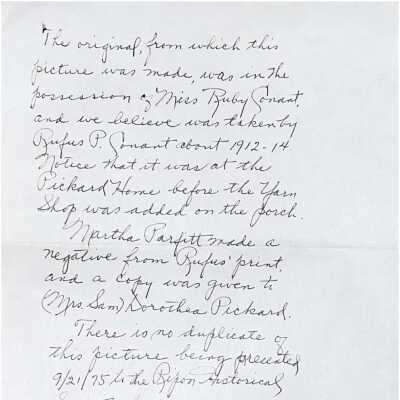 The original, from which this
picture was made, was in the
possession of Miss Ruby Conant,
and we believe was taken by
Rufus P. Conant about 1912-14
Notice that it was at the
Pickard Home before the Yarn
Shop was added on the porch.
Martha Parfitt made a
negative from Rufus' print,
and a copy was given to
(Mrs. Sam) Dorothea Pickard.
There is no duplicate of
this picture being presented
9/21/75 to the Ripon Historical